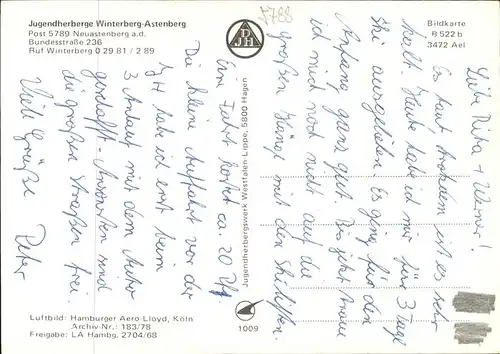 Jugendherberge Winterberg-Astenberg
Post 5789 Neuastenberg a.d.
Bundesstraße 236
Ruf Winterberg 0 29 81 / 2 89
F788
DJH
Bildkarte
R 522 b
3472 Ael
Liebe + Werner!
Es taut trotzdem ist es sehr
kalt. Heute habe ich mir für 3 Tage
Ski ausgeliehen. Es ging für den
Anfang ganz gut. Bis jetzt traue
ich mich noch nicht auf die
großen Hänge mit den Skiliften.
Eine Fahrt kostet ca. 20 Pf
Die kleine Auffahrt vor der
JH habe ich erst beim
3 Anlauf mit dem Auto
geschafft. Ansonsten sind
die großen Straßen frei.
Viele Grüße
Peter
Jugendherbergswerk Westfalen-Lippe, 5800 Hagen
1009
Luftbild: Hamburger Aero-Lloyd, Köln
Archiv-Nr.: 183/78
Freigabe: LA Hambg. 2704/68